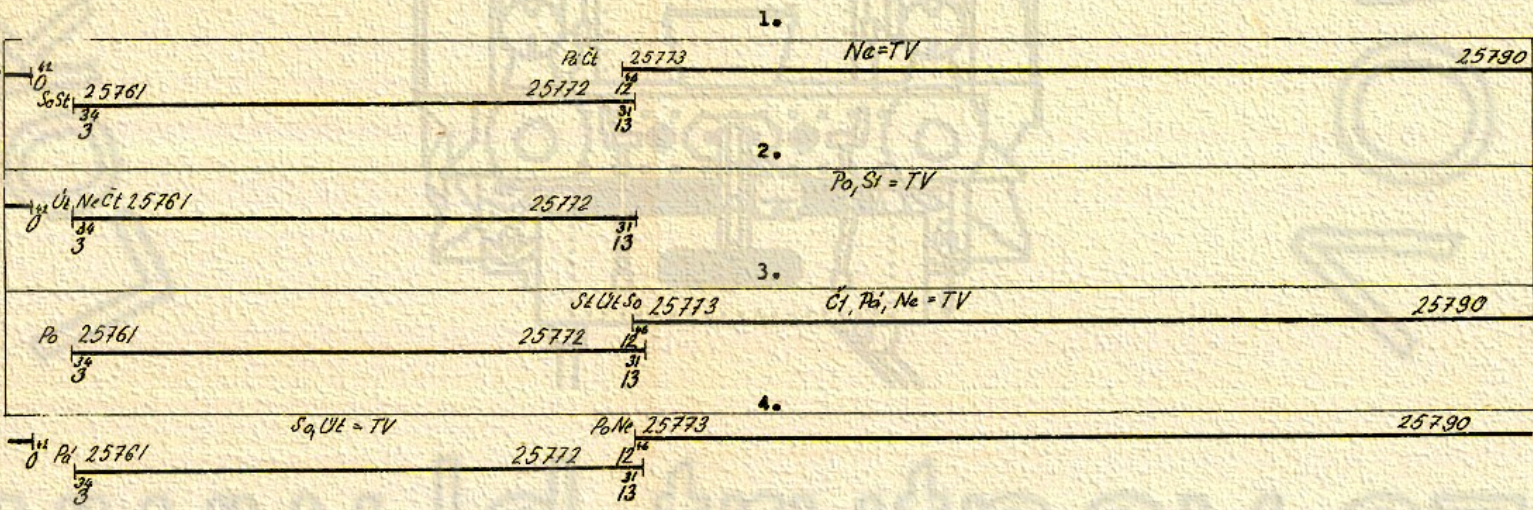 1.
Pá Čt 25773 Ne=TV 25790
42
0
So St 25761 25772 12 46
34 31
3 13
2.
Po, St = TV
42
0 Út Ne Čt 25761 25772
34 31
3 13
3.
St Út So 25773 Čt, Pá, Ne = TV 25790
Po 25761 25772 12 46
34 31
3 13
4.
So, Út = TV Po Ne 25773 25790
42
0 Pá 25761 25772 12 46
34 31
3 13